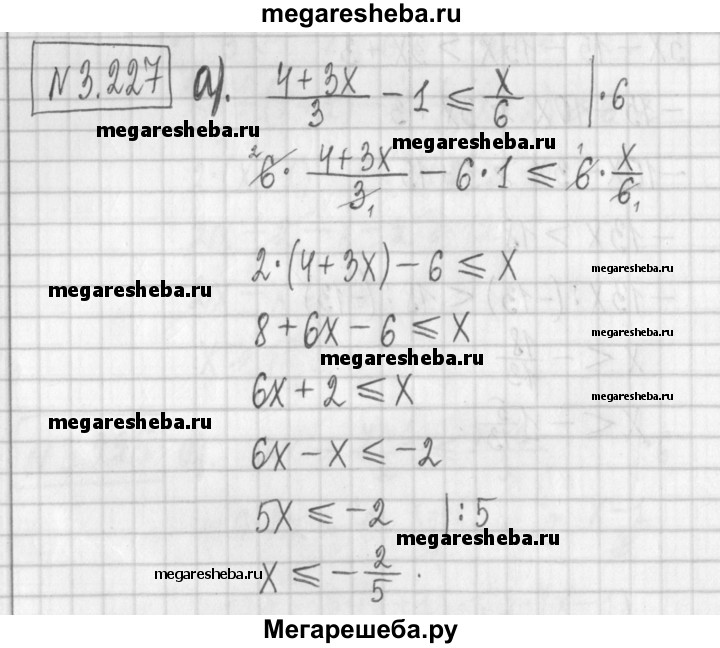 megaresheba.ru
N 3.227 а). (4+3x)/3 − 1 ⩽ x/6 | · 6
megaresheba.ru megaresheba.ru
²6 · (4+3x)/3₁ − 6 · 1 ⩽ ¹6 · x/6₁
2 · (4+3x) − 6 ⩽ x megaresheba.ru
megaresheba.ru
8 + 6x − 6 ⩽ x
megaresheba.ru
6x + 2 ⩽ x megaresheba.ru
megaresheba.ru
6x − x ⩽ −2
5x ⩽ −2 | : 5
megaresheba.ru
megaresheba.ru x ⩽ − 2/5 .
Мегарешеба.ру